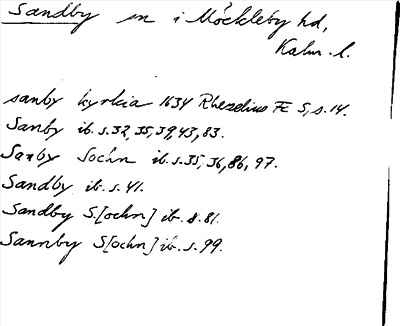 Sandby sn i Möckleby hd,
Kalm. l.
sanby kyrkia 1634 Rhezelius FE 5, s. 14.
Sanby ib. s. 32, 35, 39, 43, 83.
Sanby Sochn ib. s. 35, 36, 86, 97.
Sandby ib. s. 41.
Sandby S[ochn] ib. s. 81.
Sannby S[ochn] ib. s. 99.